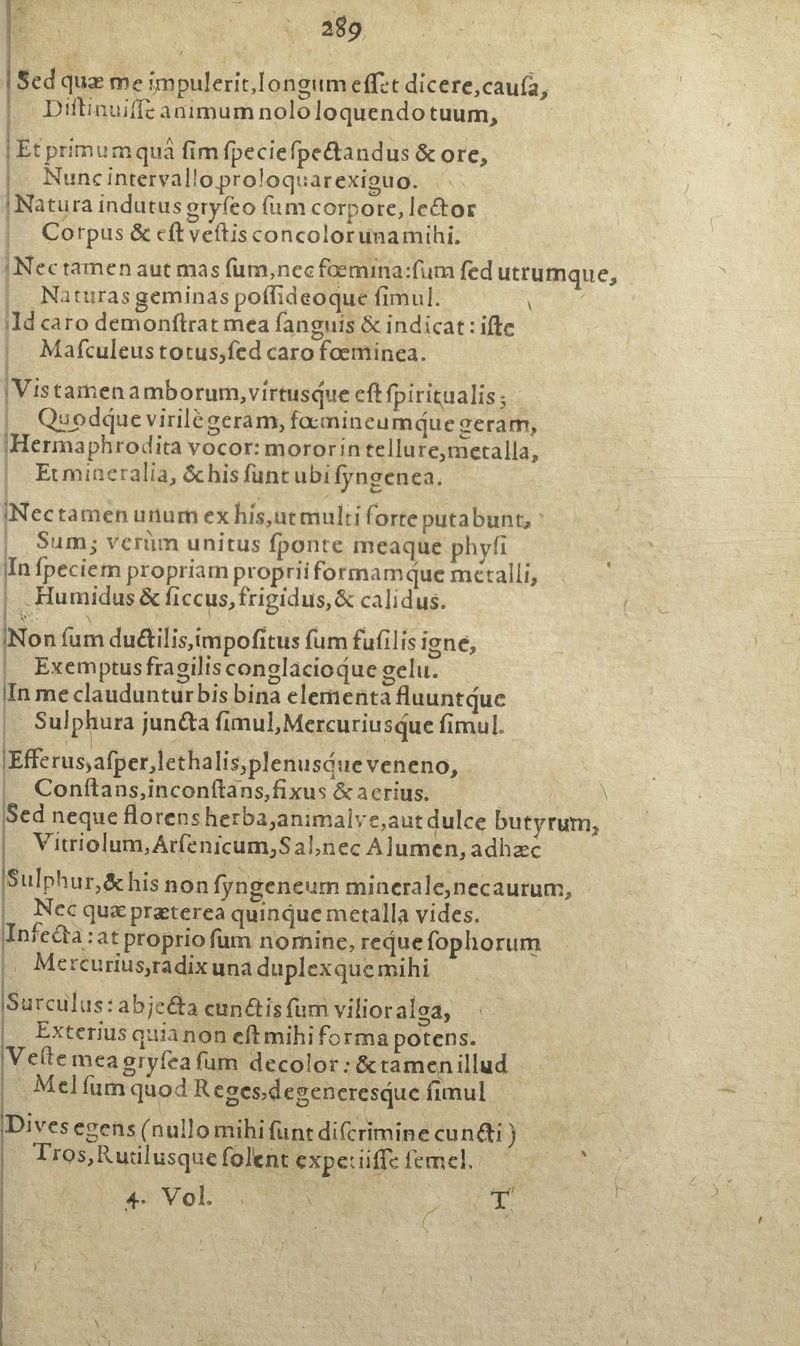 289
Sed quæ me impulerit, longum esset dicere, causa,
Distinuisse animum nolo loquendo tuum,
Et primum quâ sim specie spectandus & ore,
Nunc intervallo proloquar exiguo.
Natura indutus gryseo sum corpore, lector
Corpus & est vestis concolor una mihi.
Nec tamen aut mas sum, nec fœmina: sum sed utrumque,
Naturas geminas possideoque simul.
Id caro demonstrat mea sanguis & indicat: iste
Masculeus totus, sed caro fœminea.
Vis tamen amborum, virtusque est spiritualis;
Quodque virilè geram, fœmineumque geram,
Hermaphrodita vocor: moror in tellure, metalla,
Et mineralia, & his sunt ubi syngenea.
Nec tamen unum ex his, ut multi forte putabunt,
Sum; verùm unitus sponte meaque physi
In speciem propriam proprii formamque metalli,
Humidus & siccus, frigidus, & calidus.
Non sum ductilis, impositus sum fusilis igne,
Exemptus fragilis conglacioque gelu.
In me clauduntur bis bina elementa fluuntque
Sulphura juncta simul, Mercuriusque simul.
Efferus, asper, lethalis, plenusque veneno,
Constans, inconstans, fixus & aerius.
Sed neque florens herba, animalve, aut dulce butyrum,
Vitriolum, Arsenicum, Sal, nec Alumen, adhæc
Sulphur, & his non syngeneum minerale, nec aurum,
Nec quæ præterea quinque metalla vides.
Infecta: at proprio sum nomine, reque sophorum
Mercurius, radix una duplexque mihi
Surculus: abjecta cunctis sum vilior alga,
Exterius quia non est mihi forma potens.
Veste mea grysea sum decolor: & tamen illud
Mel sum quod Reges, degeneresque simul
Dives egens (nullo mihi sunt discrimine cuncti)
Tros, Rutilusque solent expetiisse semel.
4. Vol. T